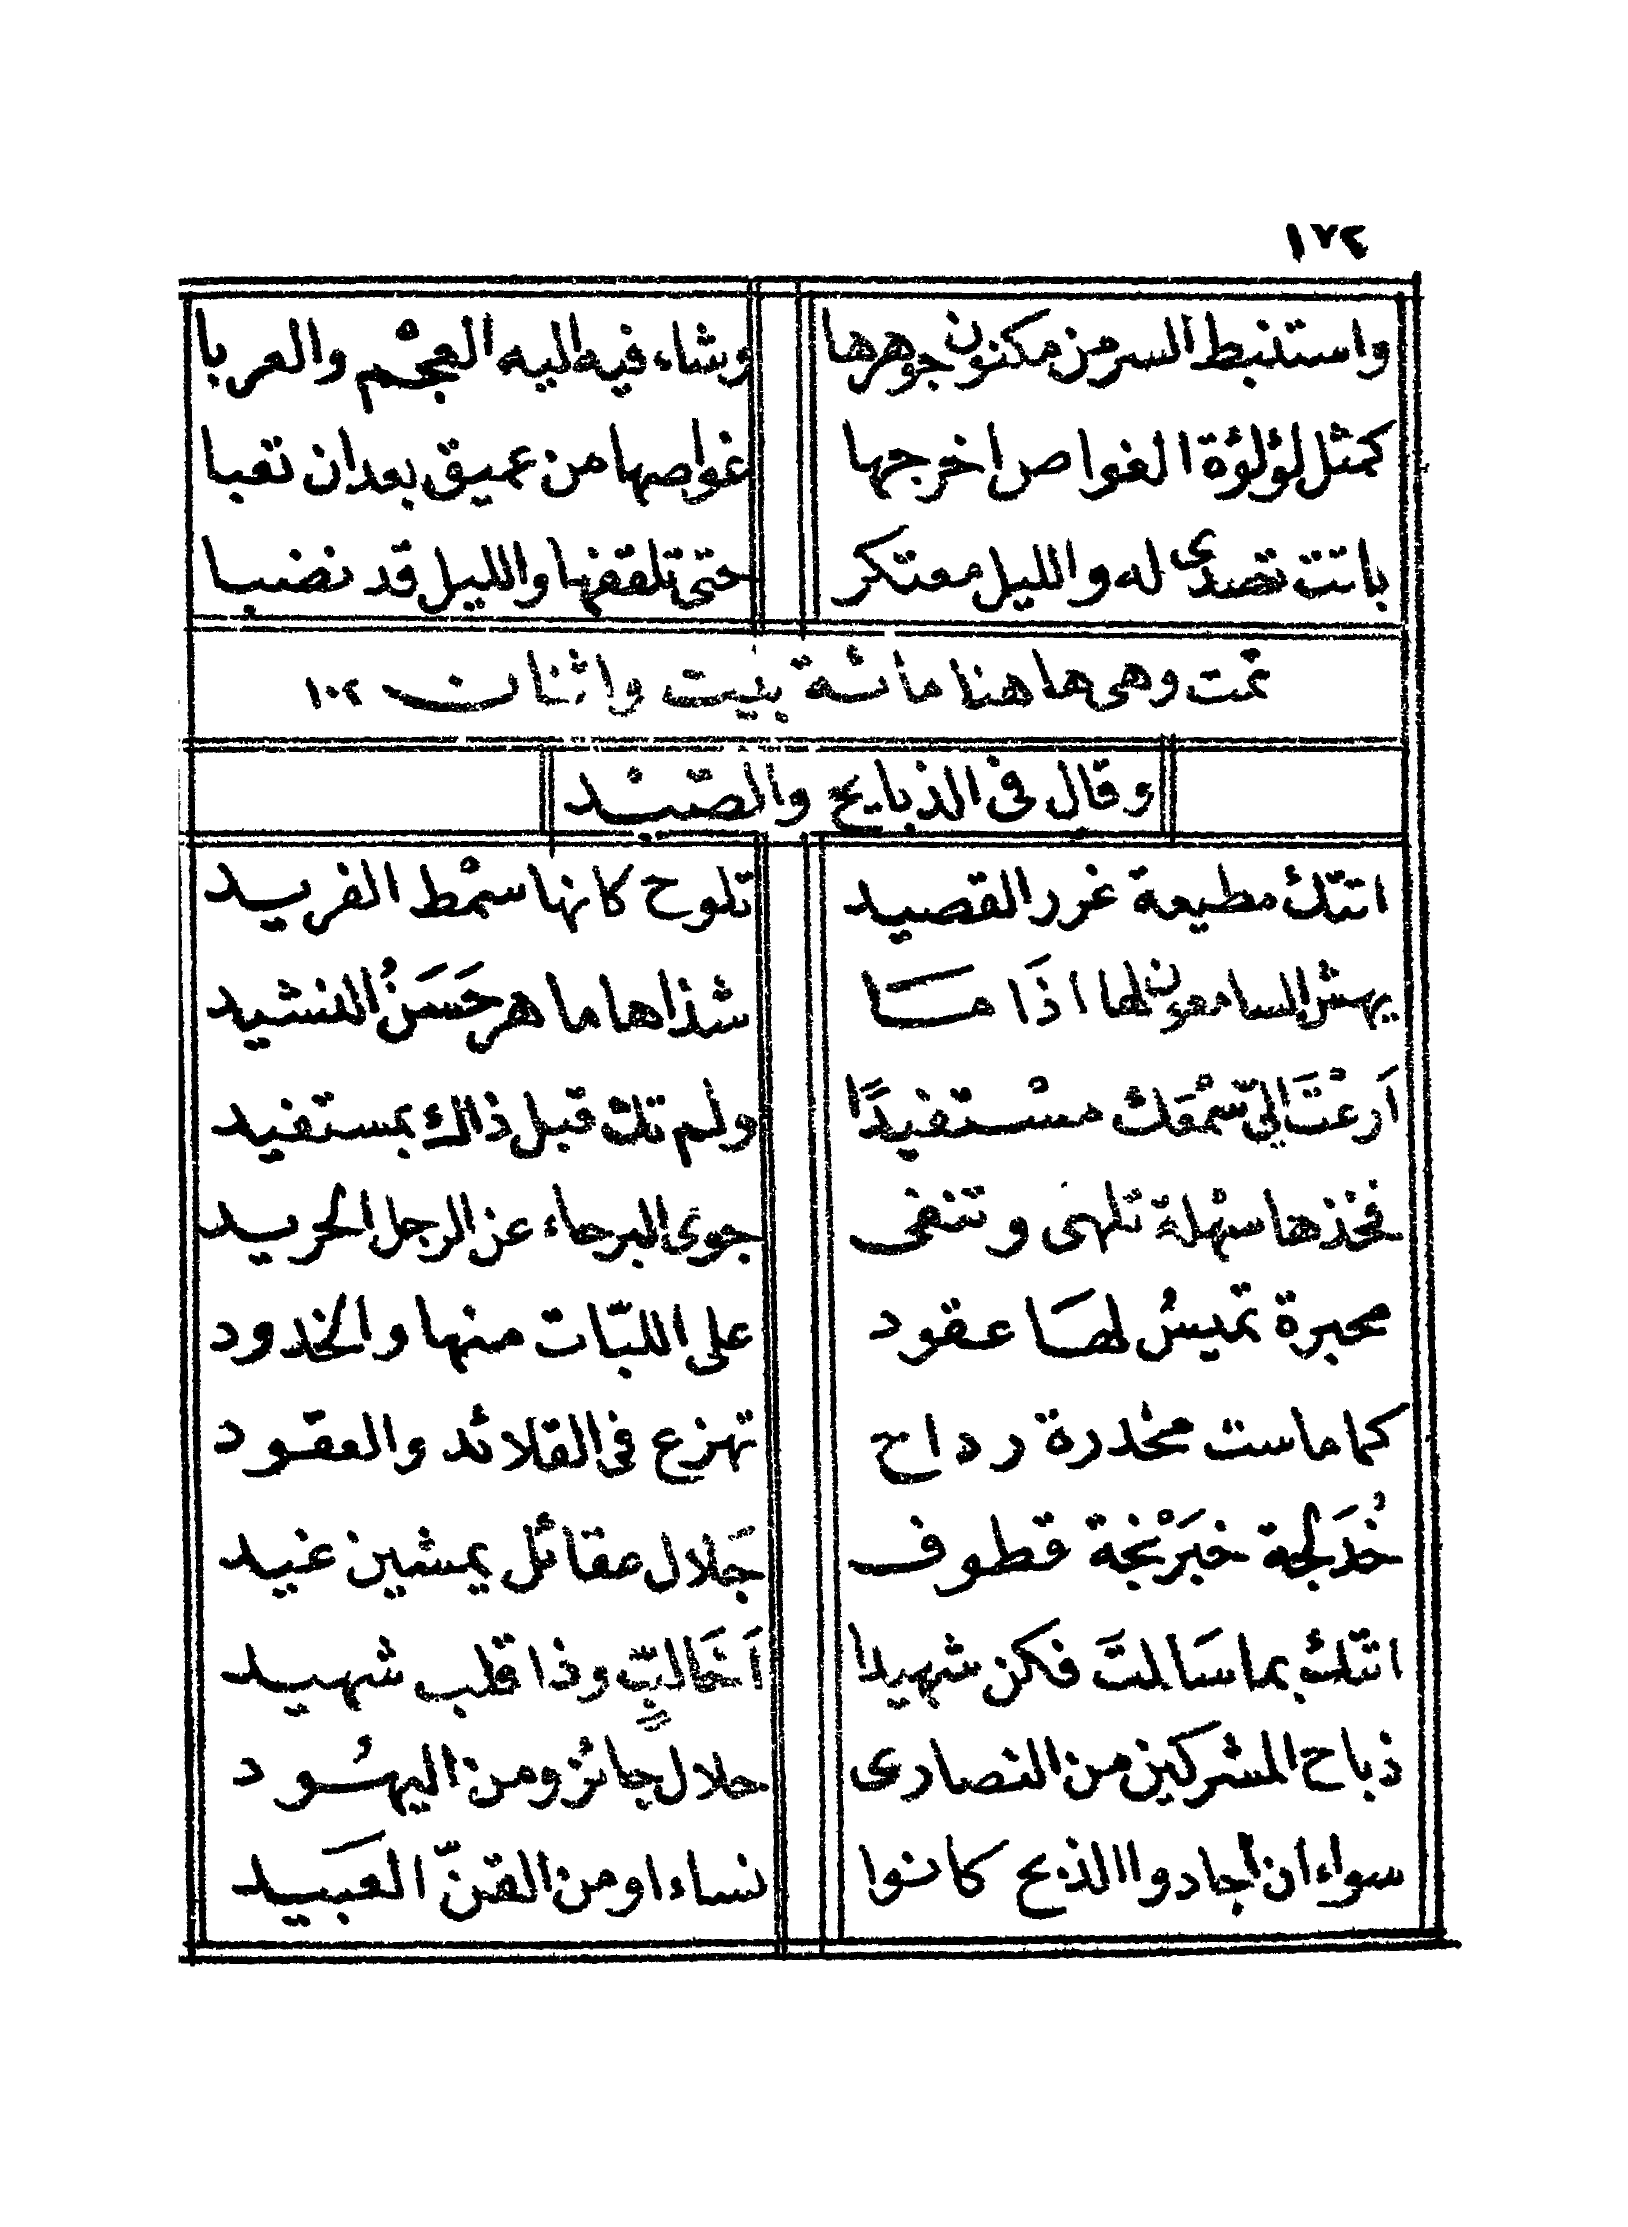 ١٧٢
واستنبط السر من مكنون جوهرها وشاء فيه اليه العجْم والعربا
كمثل لؤلؤة الغواص اخرجها غواصها من عميق بعد ان تعبا
باتت تصدى له والليل معتكر حتى تلقفها والليل قد نضبا
تمت وهى هاهنا مائة بيت واثنان ١٠٢
وقال فى الذبايح والصّيد
اتتك مطيعة غرر القصيد تلوح كانها سمْط الفريد
يهش السامعون لها اذَا مَا شذاها ماهر حَسَنُ النشيد
اَرعْتَ الىّ سمْعَك مسْتفيدًا ولم تك قبل ذاك بمستفيد
فخذها سهْلة تلهى وتنفى جوى البرحاء عن الرجل الحريد
محبرة تميسُ لهَا عقود على اللبّات منها والخدود
كما ماست مخدرة رداح تهزع فى القلائد والعقود
خُدَلجة خبَرْنجة قطوف جَلال عقائل يمشين غيد
اتتك بما سَالمتَ فكن شهيدا اَخَالبٍّ وذا قلب شهيد
ذباح المشركين من النصارى حلال جائز ومن اليهُود
سواء ان أجادوا الذبح كانوا نساء او من القنّ العَبيد